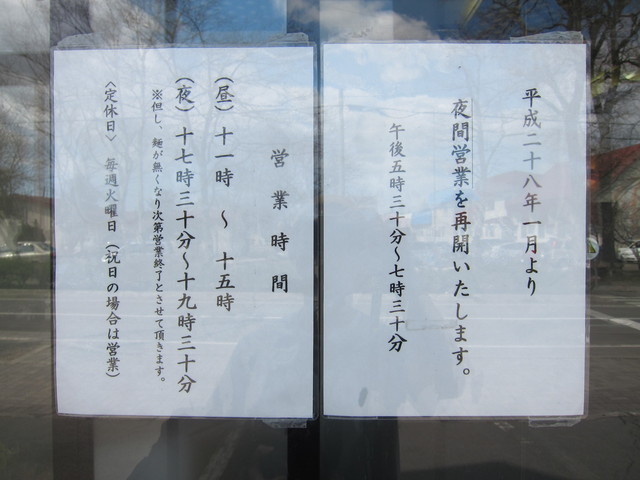 平成二十八年一月より
夜間営業を再開いたします。
午後五時三十分～七時三十分
営業時間
（昼）十一時　～　十五時
（夜）十七時三十分～十九時三十分
※但し、麺が無くなり次第営業終了とさせて頂きます。
〈定休日〉　毎週火曜日（祝日の場合は営業）